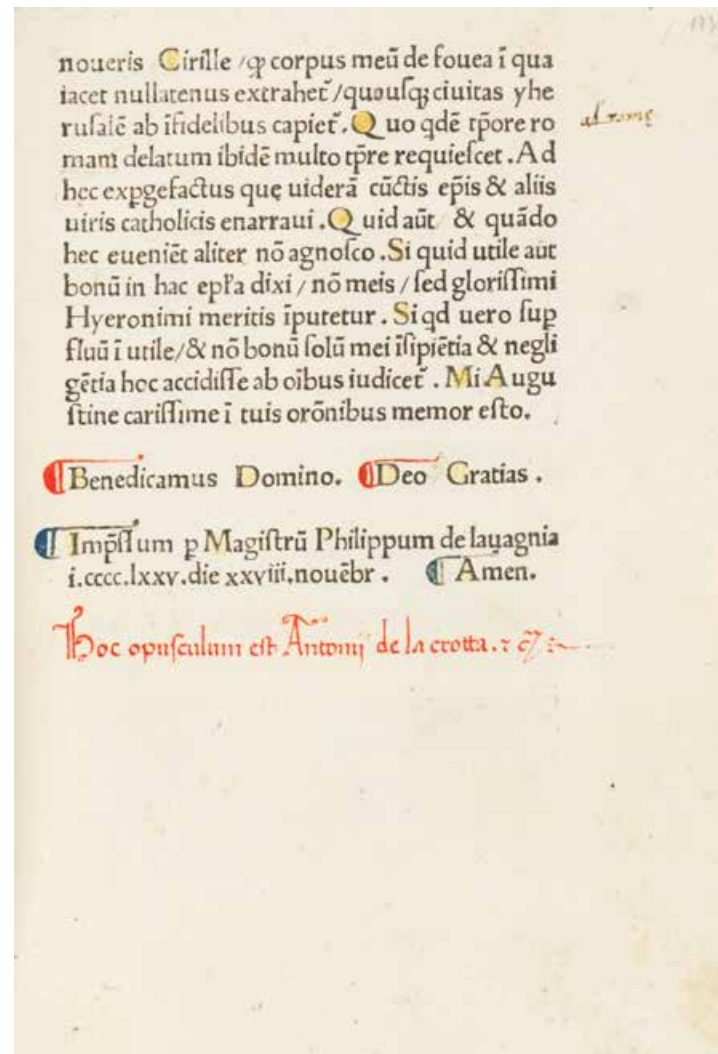 noueris Cirille / ꝙ corpus meū de fouea ī qua
iacet nullatenus extrahet᷑ / quousq; ciuitas yhe
rusalē ab īfidelibus capiet᷑. Quo qdē tp̄ore ro
mam delatum ibidē multo tp̄re requiescet. Ad
hec exꝑgefactus quę uiderā cūctis ep̄is & aliis
uiris catholicis enarraui. Quid aūt & quādo
hec eueniēt aliter nō agnosco. Si quid utile aut
bonū in hac ep̄ľa dixi / nō meis / sed gloriſſimi
Hyeronimi meritis īputetur. Si qd uero suꝑ
fluū ī utile / & nō bonū solū mei īsipiētia & negli
gētia hoc accidiſſe ab oībus iudicet᷑. Mi Augu
ſtine cariſſime ī tuis orōnibus memor eſto.
¶ Benedicamus Domino. ¶ Deo Gratias.
¶ Imp̄ſſum ꝑ Magiſtrū Philippum de lauagnia
i.cccc.lxxv.die xxviii.nouēbr. ¶ Amen.
Hoc opuſculum eſt Antonij de la crotta. ⁊ c̄